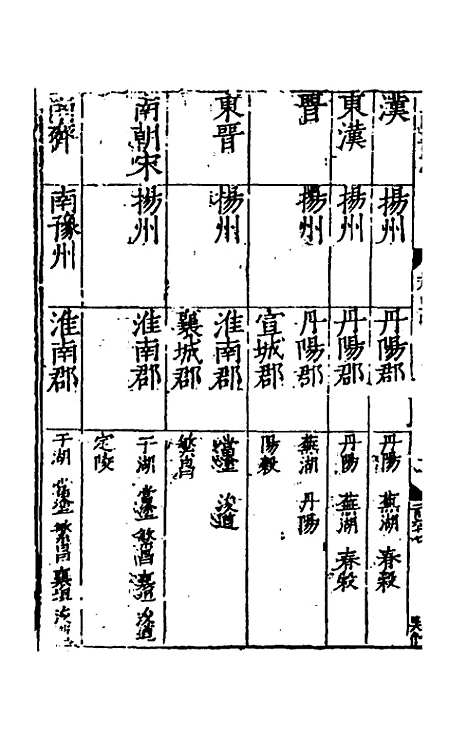 漢 揚州 丹陽郡 丹陽 蕪湖 春穀
東漢 揚州 丹陽郡 丹陽 蕪湖 春穀
晋 揚州 丹陽郡 蕪湖 丹陽
宣城郡 陽穀
東晋 揚州 淮南郡 當塗 浚遒
襄城郡 繁昌
南朝宋 揚州 淮南郡 于湖 當塗 繁昌 襄垣 浚遒
定陵
南齊 南豫州 淮南郡 于湖 當塗 繁昌 襄垣 浚